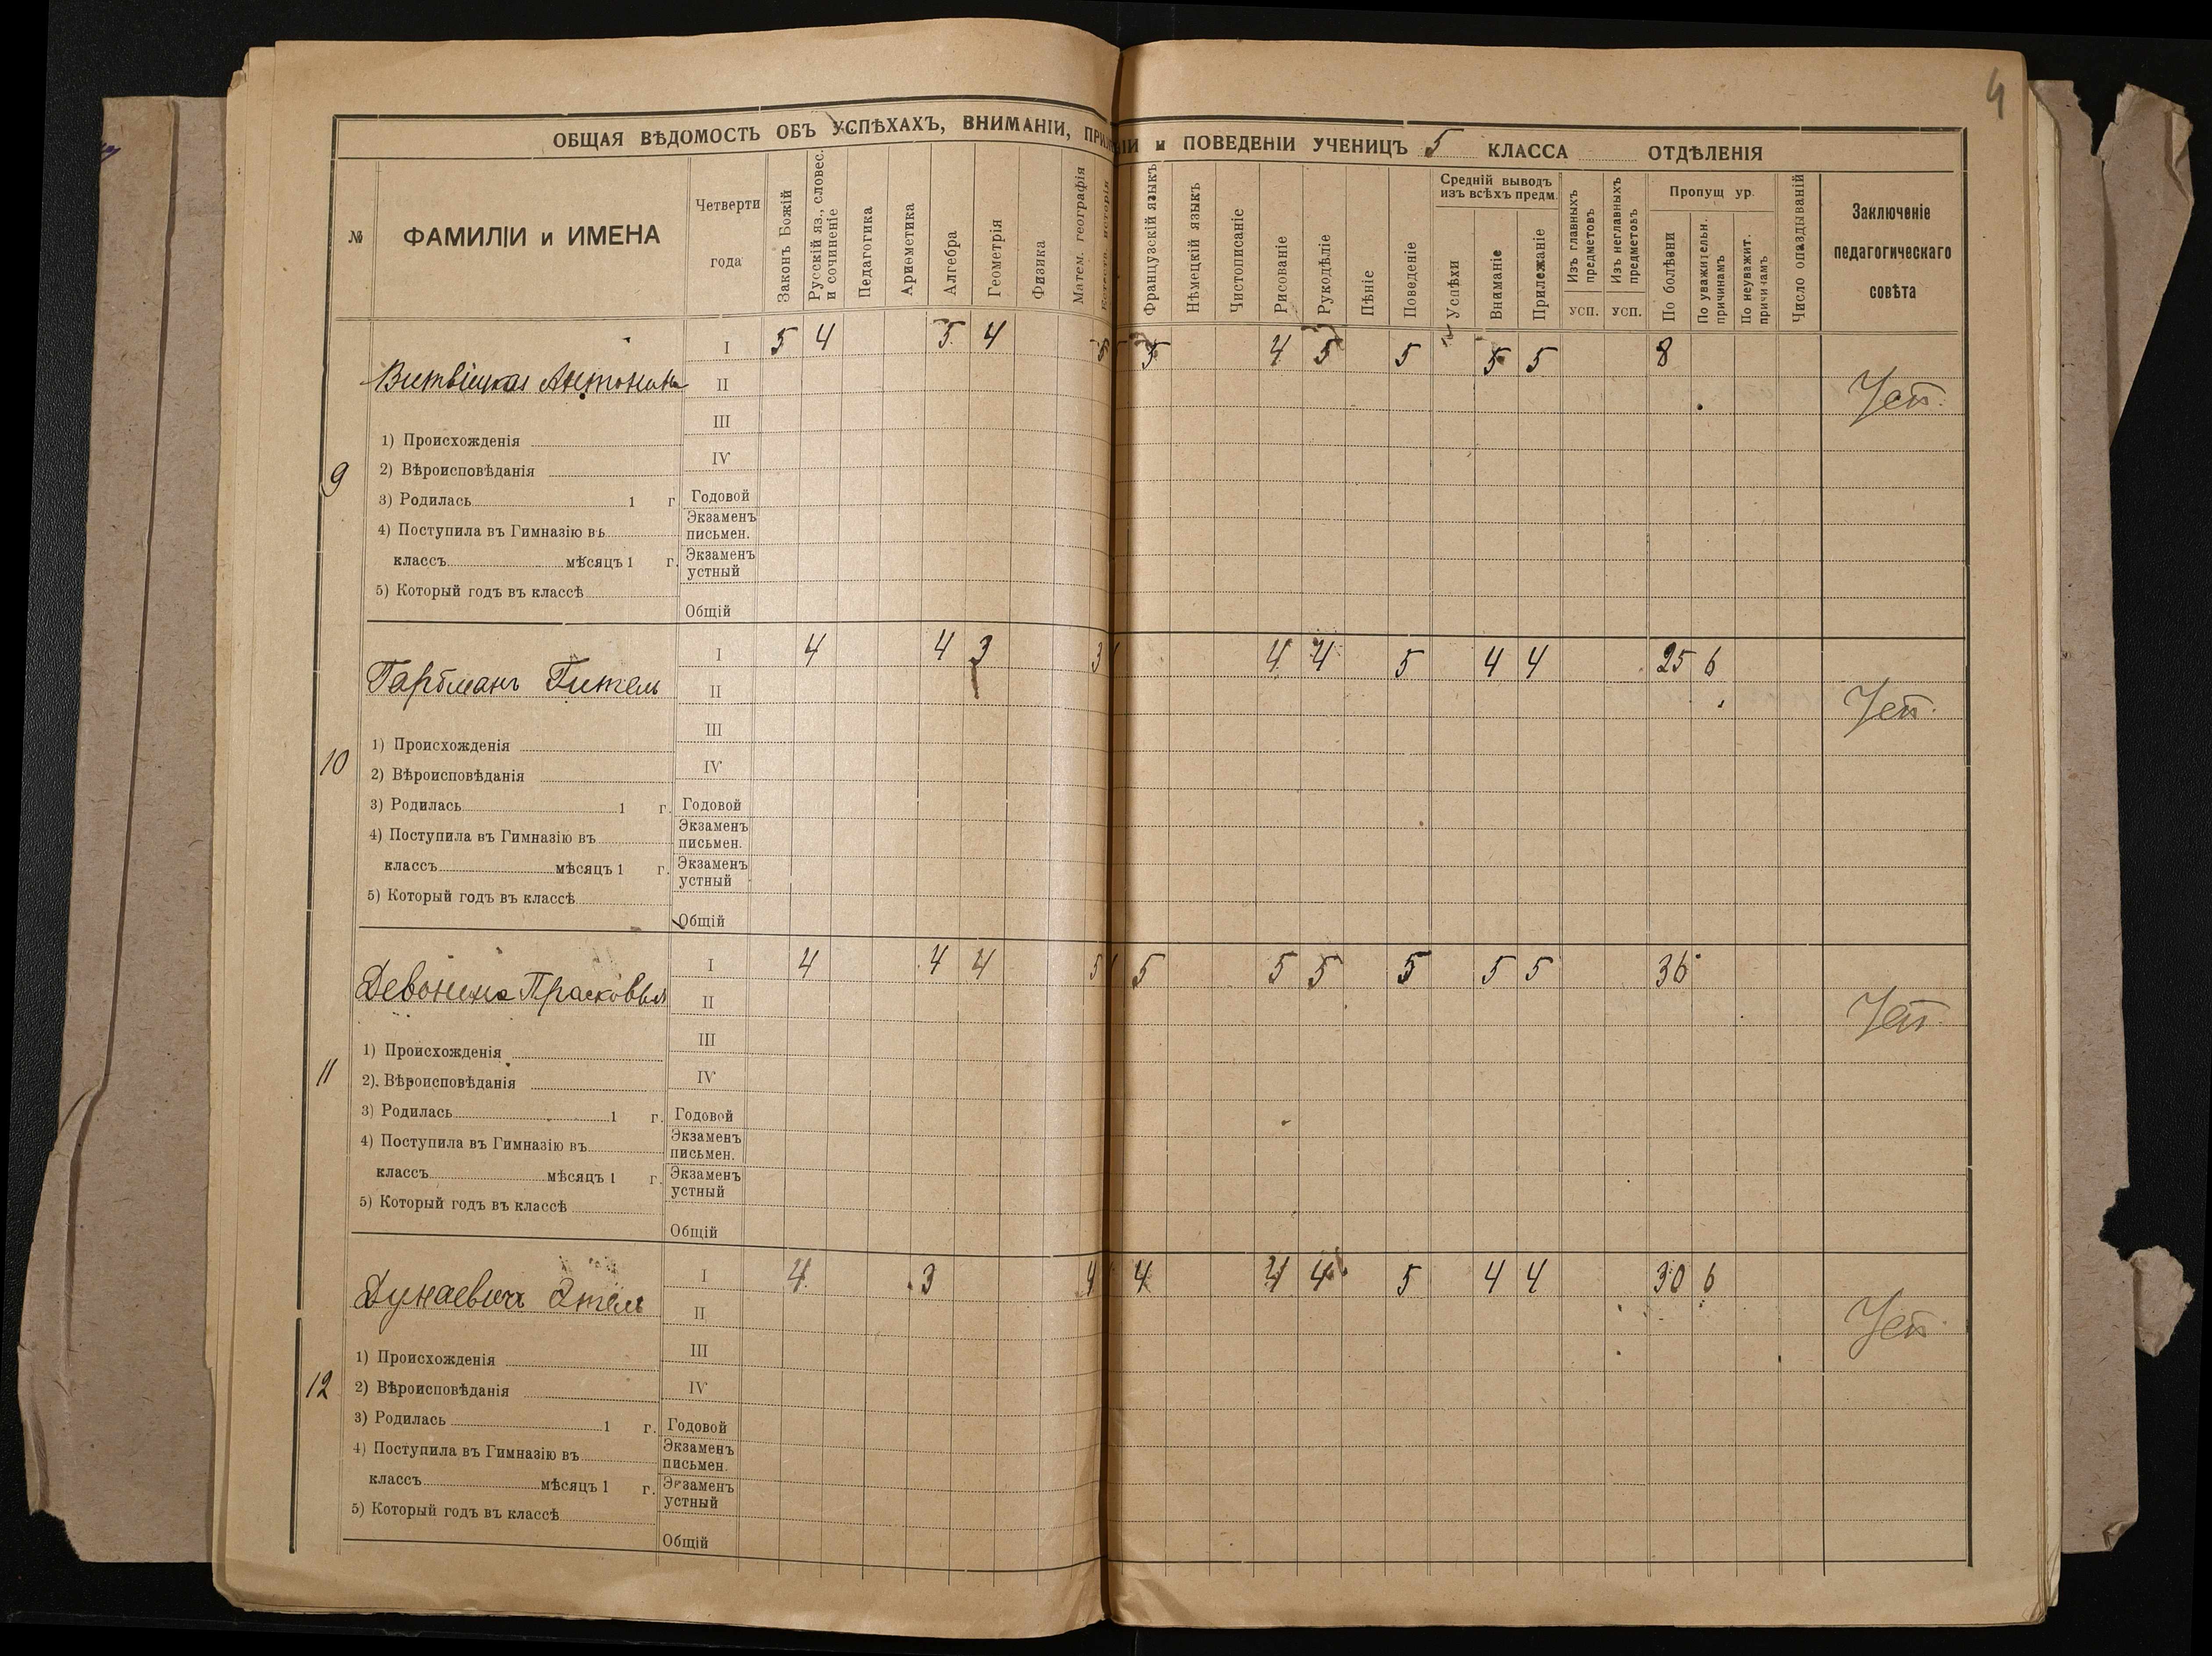 4
ОБЩАЯ ВѢДОМОСТЬ ОБЪ УСПѢХАХЪ, ВНИМАНІИ, ПРИ
ІИ и ПОВЕДЕНІИ УЧЕНИЦЪ 5 КЛАССА ОТДѢЛЕНІЯ
№
ФАМИЛІИ и ИМЕНА
Четверти
года
Законъ Божій
Русскій яз., словес.
и сочиненіе
Педагогика
Ариѳметика
Алгебра
Геометрія
Физика
Матем. географія
Французскій языкъ
Нѣмецкій языкъ
Чистописаніе
Рисованіе
Рукодѣліе
Пѣніе
Поведеніе
Средній выводъ
изъ всѣхъ предм.
Успѣхи
Вниманіе
Прилежаніе
Изъ главныхъ
предметовъ
усп.
Изъ неглавныхъ
предметовъ
усп.
Пропущ ур.
По болѣзни
По уважительн.
причинамъ
По неуважит.
причинамъ
Число опаздываній
Заключеніе
педагогическаго
совѣта
9
Витвіцкая Антонина
I 5 4 5 4 5 5 4 5 5 5 5 8
II
Усп.
III
1) Происхожденія
IV
2) Вѣроисповѣданія
3) Родилась 1 г.
Годовой
4) Поступила въ Гимназію въ
Экзаменъ
письмен.
классъ мѣсяцъ 1 г.
Экзаменъ
устный
5) Который годъ въ классѣ
Общій
10
I 4 4 3 3 4 4 5 4 4 25 6
Гартманъ Гитель
II
Усп.
III
1) Происхожденія
IV
2) Вѣроисповѣданія
3) Родилась 1 г.
Годовой
4) Поступила въ Гимназію въ
Экзаменъ
письмен.
классъ мѣсяцъ 1 г.
Экзаменъ
устный
5) Который годъ въ классѣ
Общій
11
I 4 4 4 5 5 5 5 5 5 5 36
Девонина Прасковья
II
Усп.
III
1) Происхожденія
IV
2) Вѣроисповѣданія
3) Родилась 1 г.
Годовой
4) Поступила въ Гимназію въ
Экзаменъ
письмен.
классъ мѣсяцъ 1 г.
Экзаменъ
устный
5) Который годъ въ классѣ
Общій
12
I 4 3 4 4 4 4 5 4 4 30 6
Дунаевичъ Этель
II
Усп.
III
1) Происхожденія
IV
2) Вѣроисповѣданія
3) Родилась 1 г.
Годовой
4) Поступила въ Гимназію въ
Экзаменъ
письмен.
классъ мѣсяцъ 1 г.
Экзаменъ
устный
5) Который годъ въ классѣ
Общій